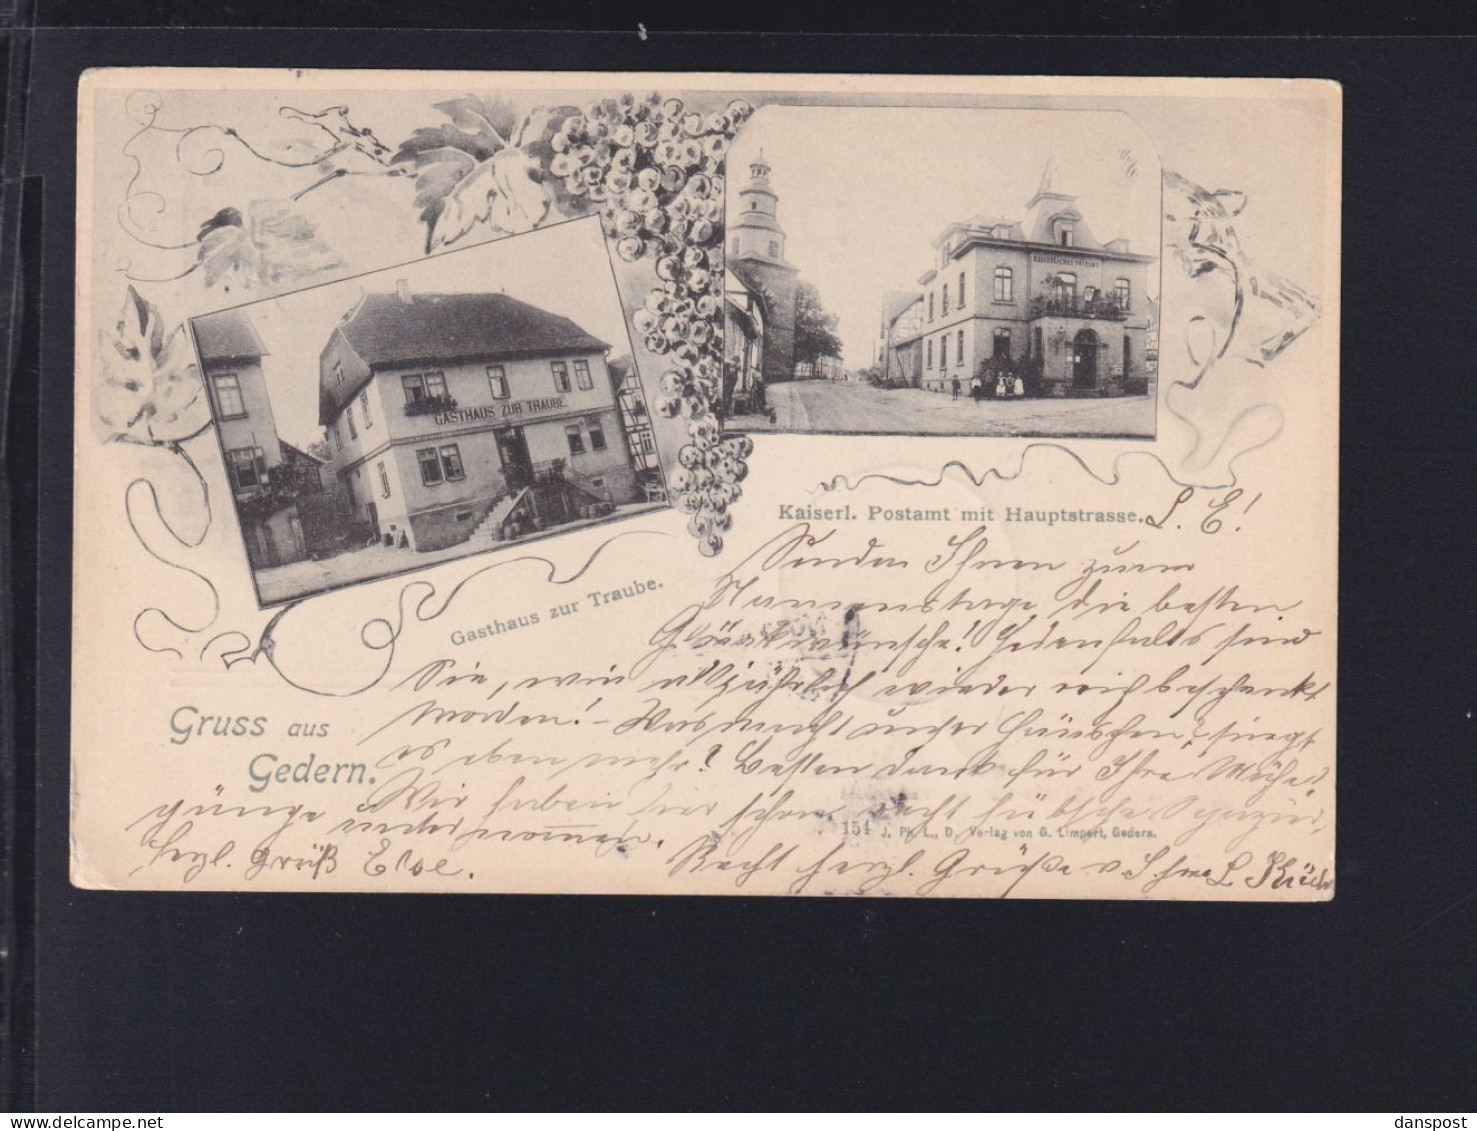 KAISERLICHES POSTAMT
GASTHAUS ZUR TRAUBE
Kaiserl. Postamt mit Hauptstrasse.
Gasthaus zur Traube.
Gruss aus
Gedern.
L. E!
Senden Ihnen zum
Namenstage die besten
Glückwünsche! Jedenfalls sind
Sie, wie alljährlich wieder reich beschenkt
worden! - Was macht unser Häuschen, singt
es eben mehr? Besten Dank für Ihre Mühe!
Wir haben hier schon recht hübsche Spazier,
gänge unternommen.
154 J. Ph. L., D. Verlag von G. Limpert, Gedern.
herzl. Gruß Else.
Recht herzl. Grüße v. L.
danspost